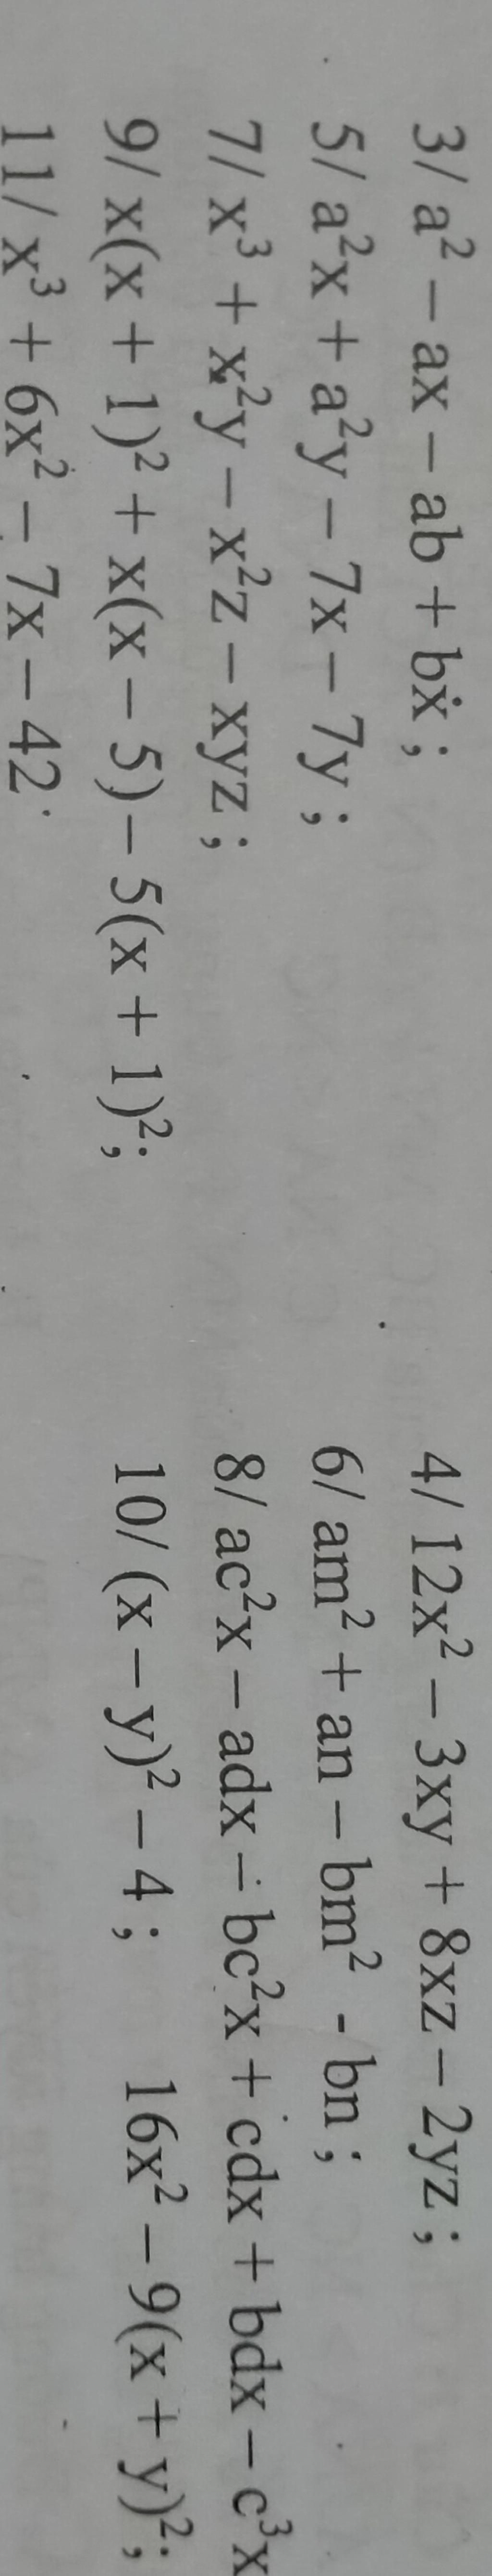 3/ a² – ax – ab + bx ; 4/ 12x² – 3xy + 8xz – 2yz ;
5/ a²x + a²y – 7x – 7y ; 6/ am² + an – bm² - bn ;
7/ x³ + x²y – x²z – xyz ; 8/ ac²x – adx – bc²x + cdx + bdx – c³x
9/ x(x + 1)² + x(x – 5) – 5(x + 1)² ; 10/ (x – y)² – 4 ; 16x² – 9(x + y)² ;
11/ x³ + 6x² – 7x – 42.